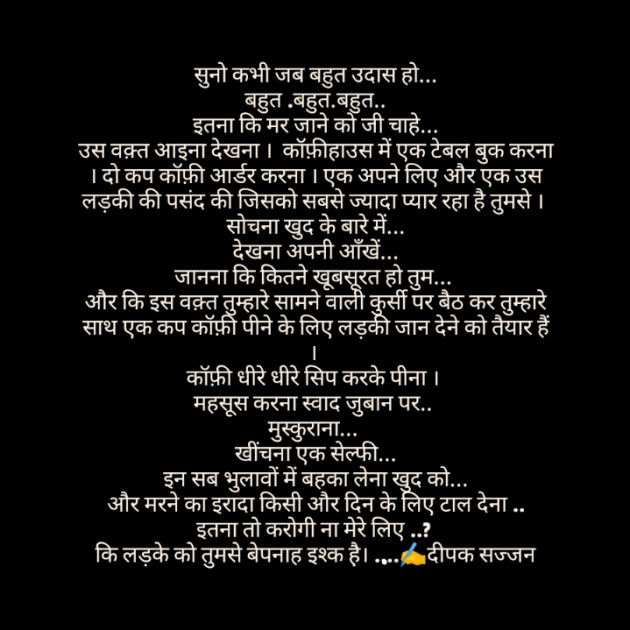 सुनो कभी जब बहुत उदास हो...
बहुत .बहुत.बहुत..
इतना कि मर जाने को जी चाहे...
उस वक़्त आइना देखना । कॉफ़ीहाउस में एक टेबल बुक करना
। दो कप कॉफ़ी आर्डर करना । एक अपने लिए और एक उस
लड़की की पसंद की जिसको सबसे ज्यादा प्यार रहा है तुमसे ।
सोचना खुद के बारे में...
देखना अपनी आँखें...
जानना कि कितने खूबसूरत हो तुम...
और कि इस वक़्त तुम्हारे सामने वाली कुर्सी पर बैठ कर तुम्हारे
साथ एक कप कॉफ़ी पीने के लिए लड़की जान देने को तैयार हैं
।
कॉफ़ी धीरे धीरे सिप करके पीना ।
महसूस करना स्वाद जुबान पर..
मुस्कुराना...
खींचना एक सेल्फी...
इन सब भुलावों में बहका लेना खुद को...
और मरने का इरादा किसी और दिन के लिए टाल देना ..
इतना तो करोगी ना मेरे लिए ..?
कि लड़के को तुमसे बेपनाह इश्क है। .,..✍️दीपक सज्जन